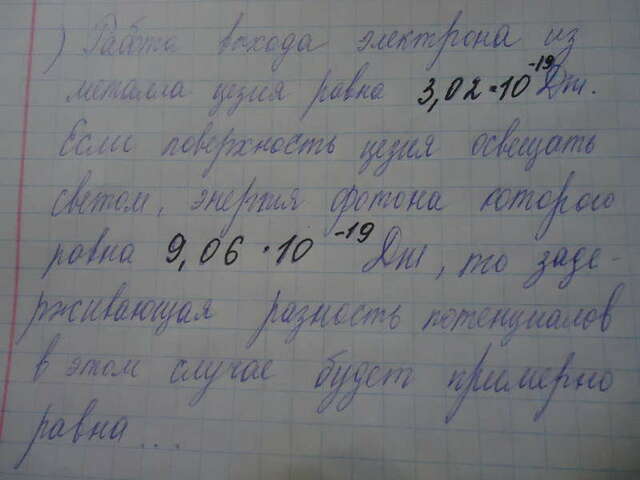 ) Работа выхода электрона из
металла цезия равна 3,02·10⁻¹⁹ Дж.
Если поверхность цезия освещать
светом, энергия фотона которого
равна 9,06·10⁻¹⁹ Дж, то заде-
рживающая разность потенциалов
в этом случае будет примерно
равна...